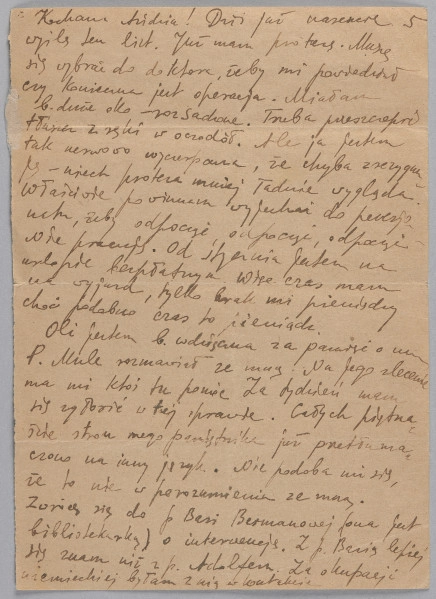 Kochana Aridnia! Dziś już nareszcie 5
wyślę ten list. Już mam protezę. Muszę
się wybrać do doktora, żeby mi powiedział
czy konieczna jest operacja. Miałam
b. duże oko - rozsadzone. Trzeba przeszczepić
tkankę z ręki w oczodół. Ale ja jestem
tak nerwowo wyczerpana, że chyba zrezygnu-
ję - niech proteza mniej ładnie wygląda.
Właściwie powinnam wyjechać do pensjo-
natu, żeby odpocząć, odpocząć, odpocząć -
Nie pracuję. Od stycznia jestem na
urlopie bezpłatnym więc czas mam
na wyjazd, tylko brak mi pieniędzy
choć podobno czas to pieniądz.
Oli jestem b. wdzięczna za pamięć o mnie
P. Mule rozmawiał ze mną. Na jego zlecenie
ma mi ktoś tu pomóc. Za tydzień mam
się zgłosić w tej sprawie. Całych piętna-
ście stron mego pamiętnika już przetłuma-
czono na inny język. Nie podoba mi się,
że to nie w porozumieniu ze mną.
Zwrócę się do p Basi Bermanowej (ona jest
bibliotekarką) o interwencję. Z p. Basią lepiej
się znam niż z p. Adolfem. Za okupacji
niemieckiej byłam z nią w kontakcie